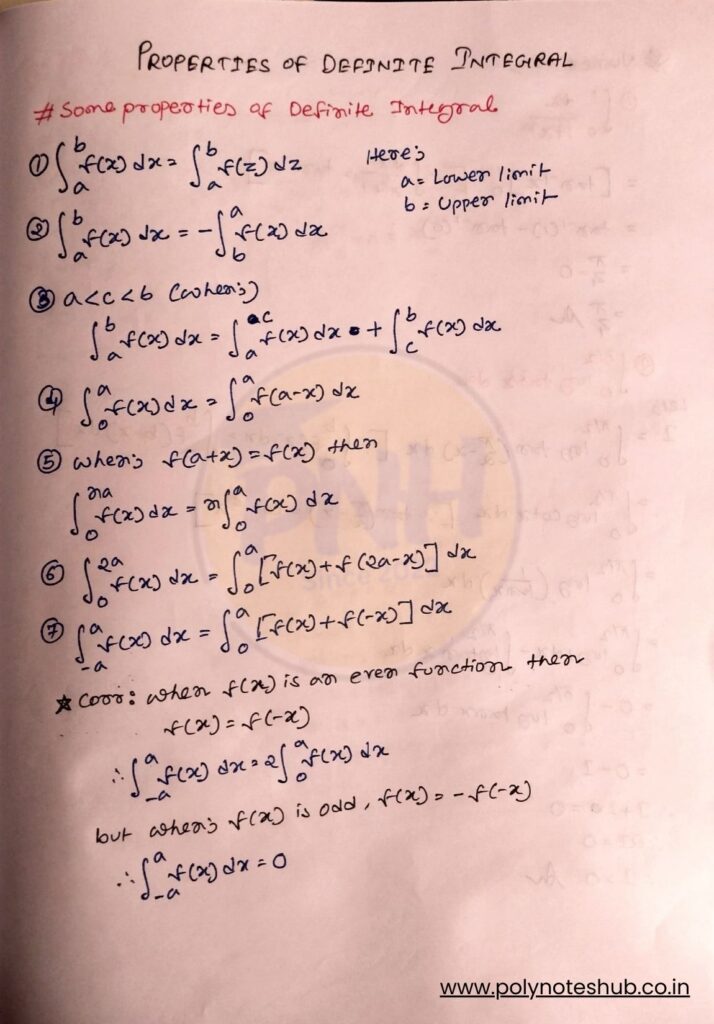 PROPERTIES OF DEFINITE INTEGRAL
# Some properties of Definite Integral
① ∫_a^b f(x) dx = ∫_a^b f(z) dz
Here;
a = Lower limit
b = Upper limit
② ∫_a^b f(x) dx = -∫_b^a f(x) dx
③ a<c<b (when;)
∫_a^b f(x) dx = ∫_a^c f(x) dx + ∫_c^b f(x) dx
④ ∫_0^a f(x) dx = ∫_0^a f(a-x) dx
⑤ when; f(a+x) = f(x) then
∫_0^{na} f(x) dx = n∫_0^a f(x) dx
⑥ ∫_0^{2a} f(x) dx = ∫_0^a [f(x)+f(2a-x)] dx
⑦ ∫_{-a}^a f(x) dx = ∫_0^a [f(x)+f(-x)] dx
☆ Corr: when f(x) is an even function then
f(x) = f(-x)
∴ ∫_{-a}^a f(x) dx = 2∫_0^a f(x) dx
but when; f(x) is odd, f(x) = -f(-x)
∴ ∫_{-a}^a f(x) dx = 0
PNH
www.polynoteshub.co.in